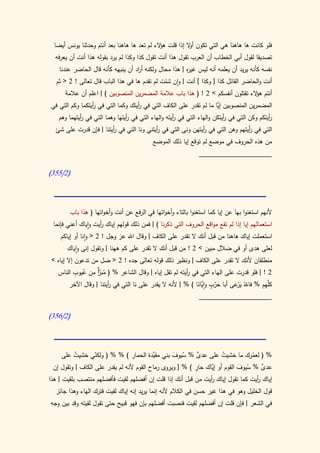 فلو كانت ها هاهنا هي التي تكون أولا إذا قلت هؤلاء لم تعد ها هاهنا بعد أنتم وحدثنا يونس أيضا
تصديقا لقول أبي الخطاب أن العرب تقول هذا أنت تقول كذا وكذا لم يرد بقوله هذا أنت أن يعرفه
نفسه كأنه يريد أن يعلمه أنه ليس غيره | هذا محال ولكنه أراد أن ينبهه كأنه قال الحاضر عندنا
أنت والحاضر القائل كذا | وكذا | أنت | وإن شئت لم تقدم ها في هذا الباب قال تعالى ! 2 < ثم
أنتم هؤلاء تقتلون أنفسكم > 2 ! ( هذا باب علامة المضمرين المنصوبين ) | اعلم أن علامة
المضمرين المنصوبين إيّا ما لم تقدر على الكاف التي في رأيتك وكما التي في رأيتكما وكم التي في
رأيتكم وكن التي في رأيتكن والهاء التي في رأيته والهاء التي في رأيتها وهما التي في رأيتهما وهم
التي في رأيتهم وهن التي في رأيتهن ونى التي في رأيتنى ونا التي في رأيتنا | فإن قدرت على شئ
من هذه الحروف في موضع لم توقع إيا ذلك الموضع
(355/2)
لأنهم استغنوا بها عن إيا كما استغنوا بالتاء وأخواتها في الرفع عن أنت وأخواتها ( هذا باب
استعمالهم إيا إذا لم تقع مواقع الحروف التي ذكرنا ) | فمن ذلك قولهم إياك رأيت وإياك أعنى فإنما
استعملت إياك هاهنا من قبل أنك لا تقدر على الكاف | وقال الله عز وجل ! 2 < وإنا أو إياكم
لعلى هدى أو في ضلال مبين > 2 ! من قبل أنك لا تقدر على كم ههنا | وتقول إنى وإياك
منطلقان لأنك لا تقدر على الكاف | ونظير ذلك قوله تعالى جده ! 2 < ضل من تدعون إلا إياه >
2 ! | فلو قدرت على الهاء التي في رأيته لم تقل إياه | وقال الشاعر % ( مُبَرَّأٌ من عُيوبِ الناس
كلِّهِمِ % فاللهُ يَرْعَى أبا حَرْبٍ وإيّانا ) % | لأنه لا يقدر على نا التي في رأيتنا | وقال الآخر
(356/2)
% ( لعمْرك ما خشيتُ على عدىًّ % سُيوفَ بني مقيِّدة الحمار ) % % ( ولكنّي خشيتُ على
عدىًّ % سُيوف القوم أو إيّاك حارِ ) % | ويروى رماح القوم لأنه لم يقدر على الكاف | وتقول إن
إياك رأيت كما تقول إياك رأيت من قبل أنك إذا قلت إن أفضلهم لقيت فأفضلهم منتصب بلقيت | هذا
قول الخليل وهو في هذا غير حسن في الكلام لأنه إنما يريد إنه إياك لقيت فترك الهاء وهذا جائز
في الشعر | فإن قلت إن أفضلهم لقيت فنصبت أفضلهم بإن فهو قبيح حتى تقول لقيته وقد بين وجه